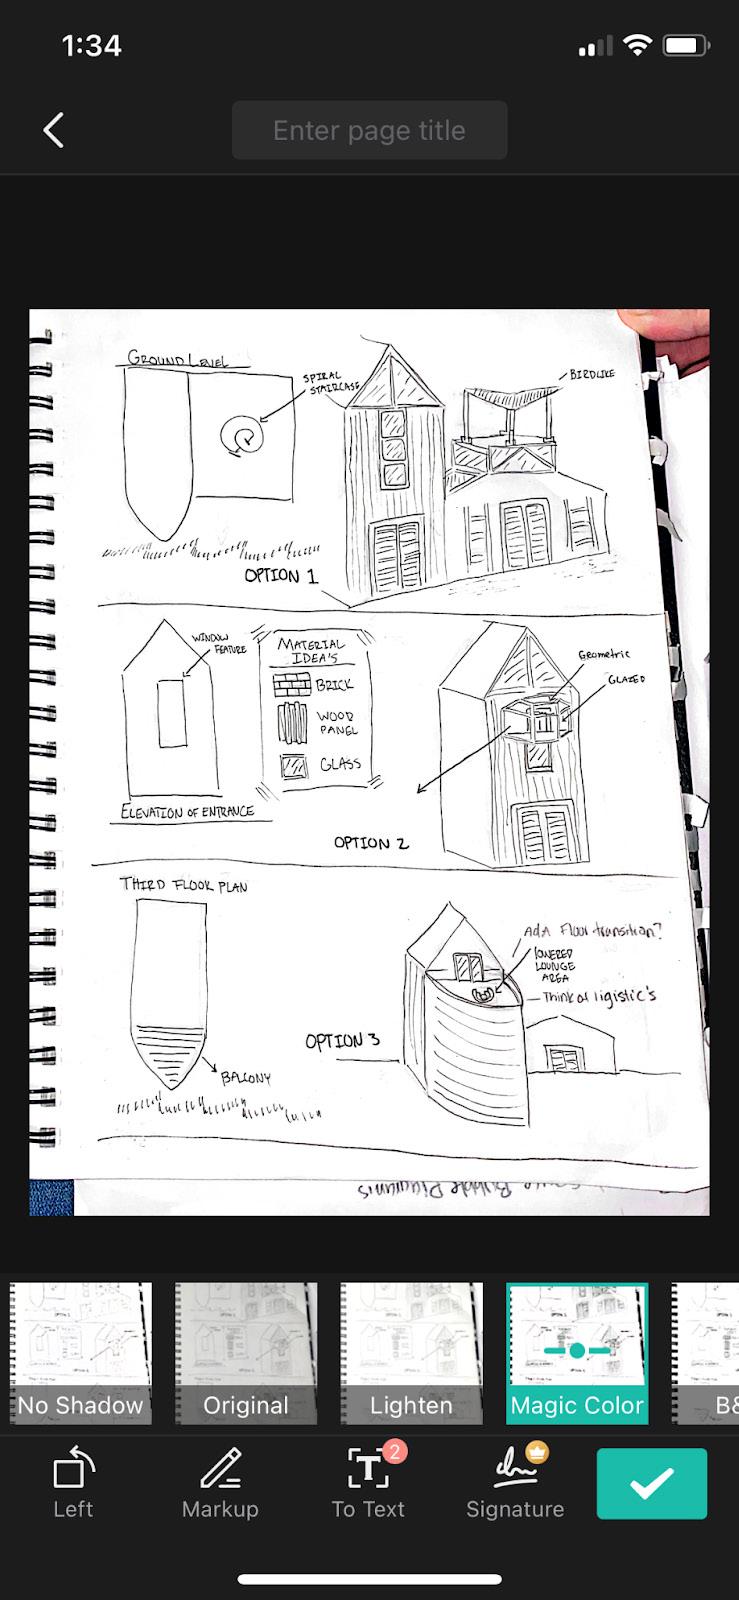 1:34
Enter page title
GROUND LEVEL
SPIRAL
STAIRCASE
BIRDLIKE
OPTION 1
WINDOW
FEATURE
MATERIAL
IDEA'S
BRICK
WOOD
PANEL
GLASS
Geometric
GLAZED
ELEVATION OF ENTRANCE
OPTION 2
THIRD FLOOR PLAN
ADA Floor transition?
LOWERED
LOUNGE
AREA
Think of ligistic's
OPTION 3
BALCONY
Bubble Diagrams
No Shadow
Original
Lighten
Magic Color
B&
Left
Markup
2
To Text
Signature